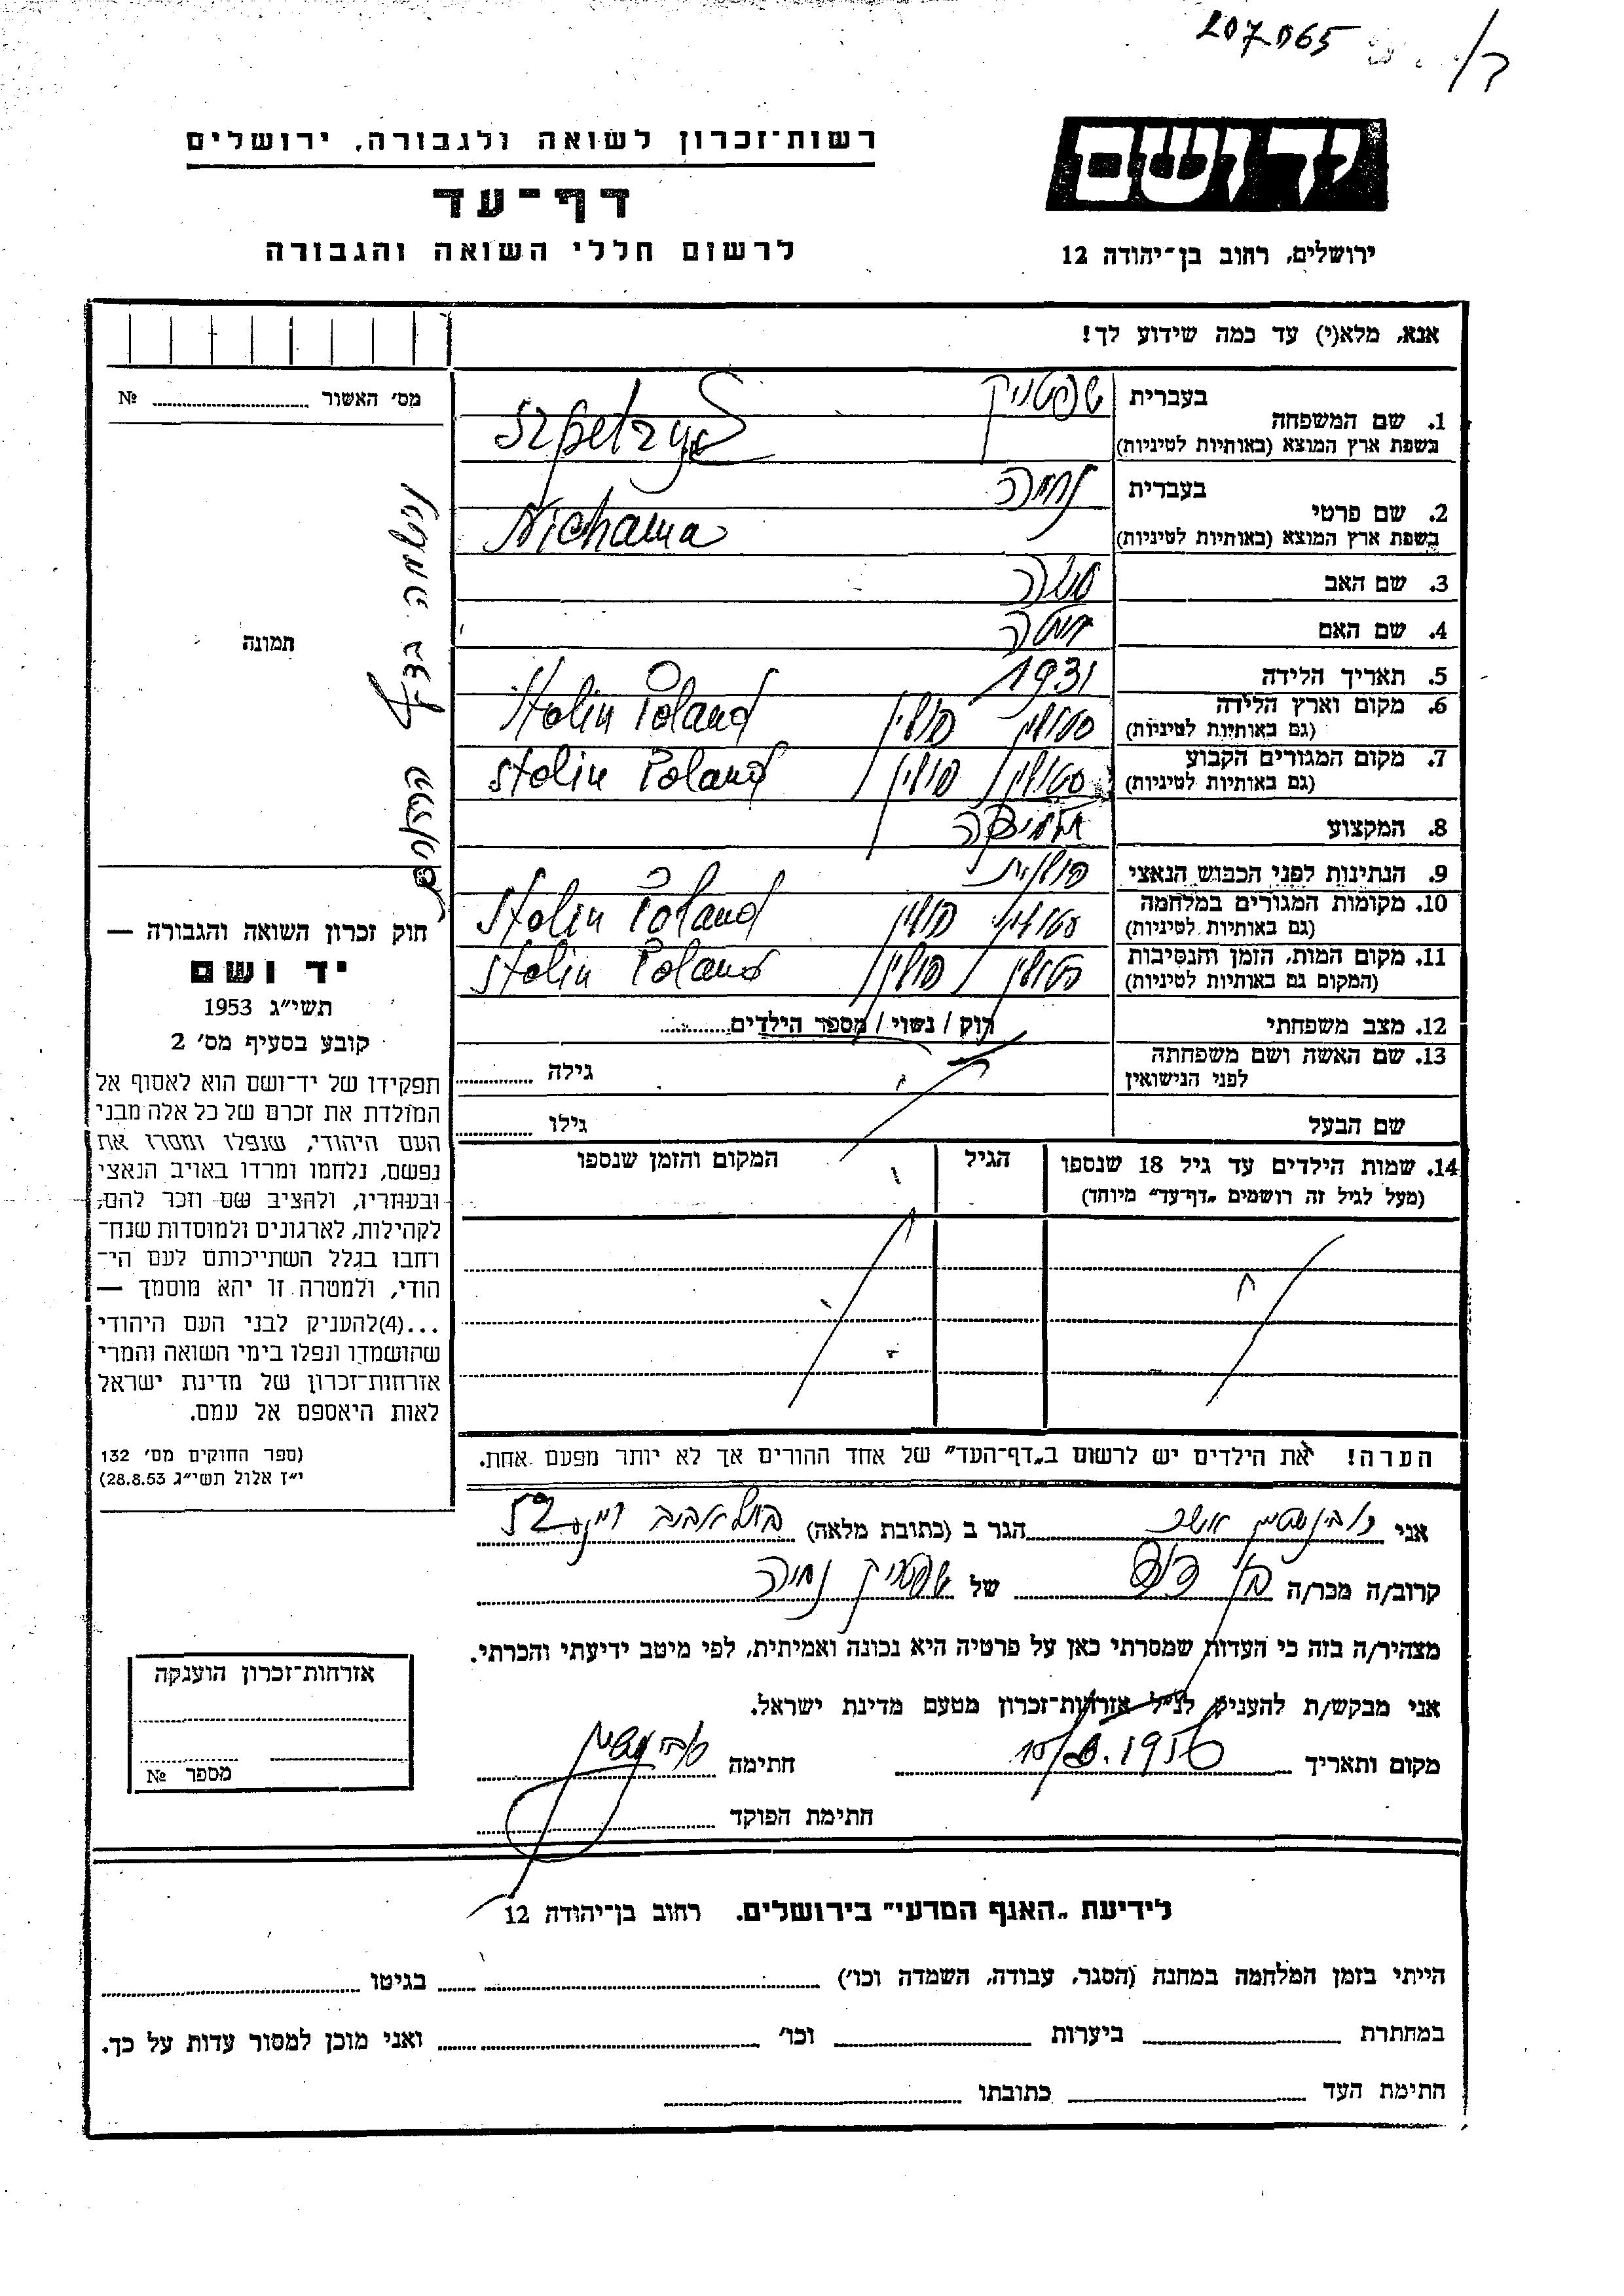 207065
רשות־זכרון לשואה ולגבורה, ירושלים
דף־עד
לרשום חללי השואה והגבורה
יד ושם
ירושלים, רחוב בן־יהודה 12
אנא, מלא(י) עד כמה שידוע לך!
מס׳ האשור № ............
1. שם המשפחה
בעברית
בשפת ארץ המוצא (באותיות לטיניות)
2. שם פרטי
בעברית נחמה
בשפת ארץ המוצא (באותיות לטיניות) Nichama
3. שם האב משה
4. שם האם
5. תאריך הלידה 1931
6. מקום וארץ הלידה
(גם באותיות לטיניות) סטולין / פולין Stolin Poland
7. מקום המגורים הקבוע
(גם באותיות לטיניות) סטולין / פולין Stolin Poland
8. המקצוע תלמידה
9. הנתינות לפני הכבוש הנאצי פולנית
10. מקומות המגורים במלחמה
(גם באותיות לטיניות) סטולין פולין Stolin Poland
11. מקום המות, הזמן והנסיבות
(המקום גם באותיות לטיניות) סטולין / פולין / Stolin Poland
12. מצב משפחתי רוק / נשוי / מספר הילדים............
13. שם האשה ושם משפחתה
לפני הנישואין
גילה ............
שם הבעל גילו ............
14. שמות הילדים עד גיל 18 שנספו
(מעל לגיל זה רושמים „דף־עד״ מיוחד)
הגיל
המקום והזמן שנספו
הערה! את הילדים יש לרשום ב„דף־העד״ של אחד ההורים אך לא יותר מפעם אחת.
תמונה
חוק זכרון השואה והגבורה —
יד ושם
תשי״ג 1953
קובע בסעיף מס׳ 2
תפקידו של יד־ושם הוא לאסוף אל
המולדת את זכרם של כל אלה מבני
העם היהודי, שנפלו ומסרו את
נפשם, נלחמו ומרדו באויב הנאצי
ובעוזריו, ולהציב שם וזכר להם,
לקהילות, לארגונים ולמוסדות שנח־
רחבו בגלל השתייכותם לעם הי־
הודי, ולמטרה זו יהא מוסמך —
...(4)להעניק לבני העם היהודי
שהושמדו ונפלו בימי השואה והמרי
אזרחות־זכרון של מדינת ישראל
לאות היאספם אל עמם.
(ספר החוקים מס׳ 132
י״ז אלול תשי״ג 28.8.53)
אני רובינשטיין אשר הגר ב (כתובת מלאה)
קרוב/ה מכר/ה בן דוד של נחמה
מצהיר/ה בזה כי העדות שמסרתי כאן על פרטיה היא נכונה ואמיתית, לפי מיטב ידיעתי והכרתי.
אני מבקש/ת להעניק לנ״ל אזרחות־זכרון מטעם מדינת ישראל.
מקום ותאריך חתימה
חתימת הפוקד
אזרחות־זכרון הוענקה
מספר №
לידיעת „האגף המדעי״ בירושלים. רחוב בן־יהודה 12
הייתי בזמן המלחמה במחנה (הסגר, עבודה, השמדה וכו׳) ............ בגיטו ............
במחתרת ............ ביערות ............ וכו׳ ............ ואני מוכן למסור עדות על כך.
חתימת העד ............ כתובתו ............